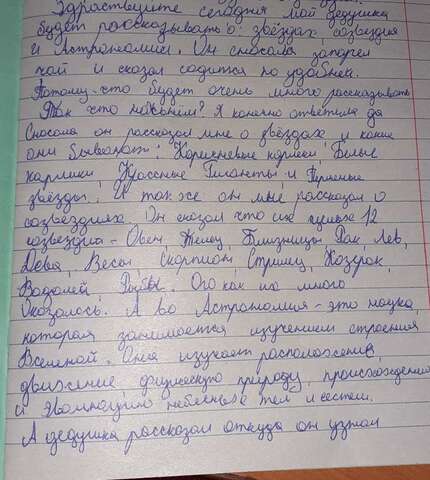 Здраствуйте сегодня мой дедушка
будет рассказывать о: звёздах созвездия
и Астрономии. Он сначала заварел
чай и сказал садится по удобней.
Потому-что будет очень много рассказывать
Так что начнём? Я конечно ответила да
Сначала он рассказал мне о звёздах и какие
они бываают: Коричневые карлеки, Белые
карлики, Красные Гиганты, и
звёзды. И так же он мне рассказал о
созвездиях. Он сказал что их целых 12
созвездия - Овен, Телец, Близницы, Рак Лев,
Дева, Весы Скорпион, Стрилец, Козерог,
Водолей, Рыбы. Ого как их много
Оказалось. А во Астрономия - это наука,
которая занимается изучением строения
Вселеной. Она изучает расположение,
движение, физическую природу, происхождение
и небесных тел и систем.
А дедушка рассказал откуда он узнал